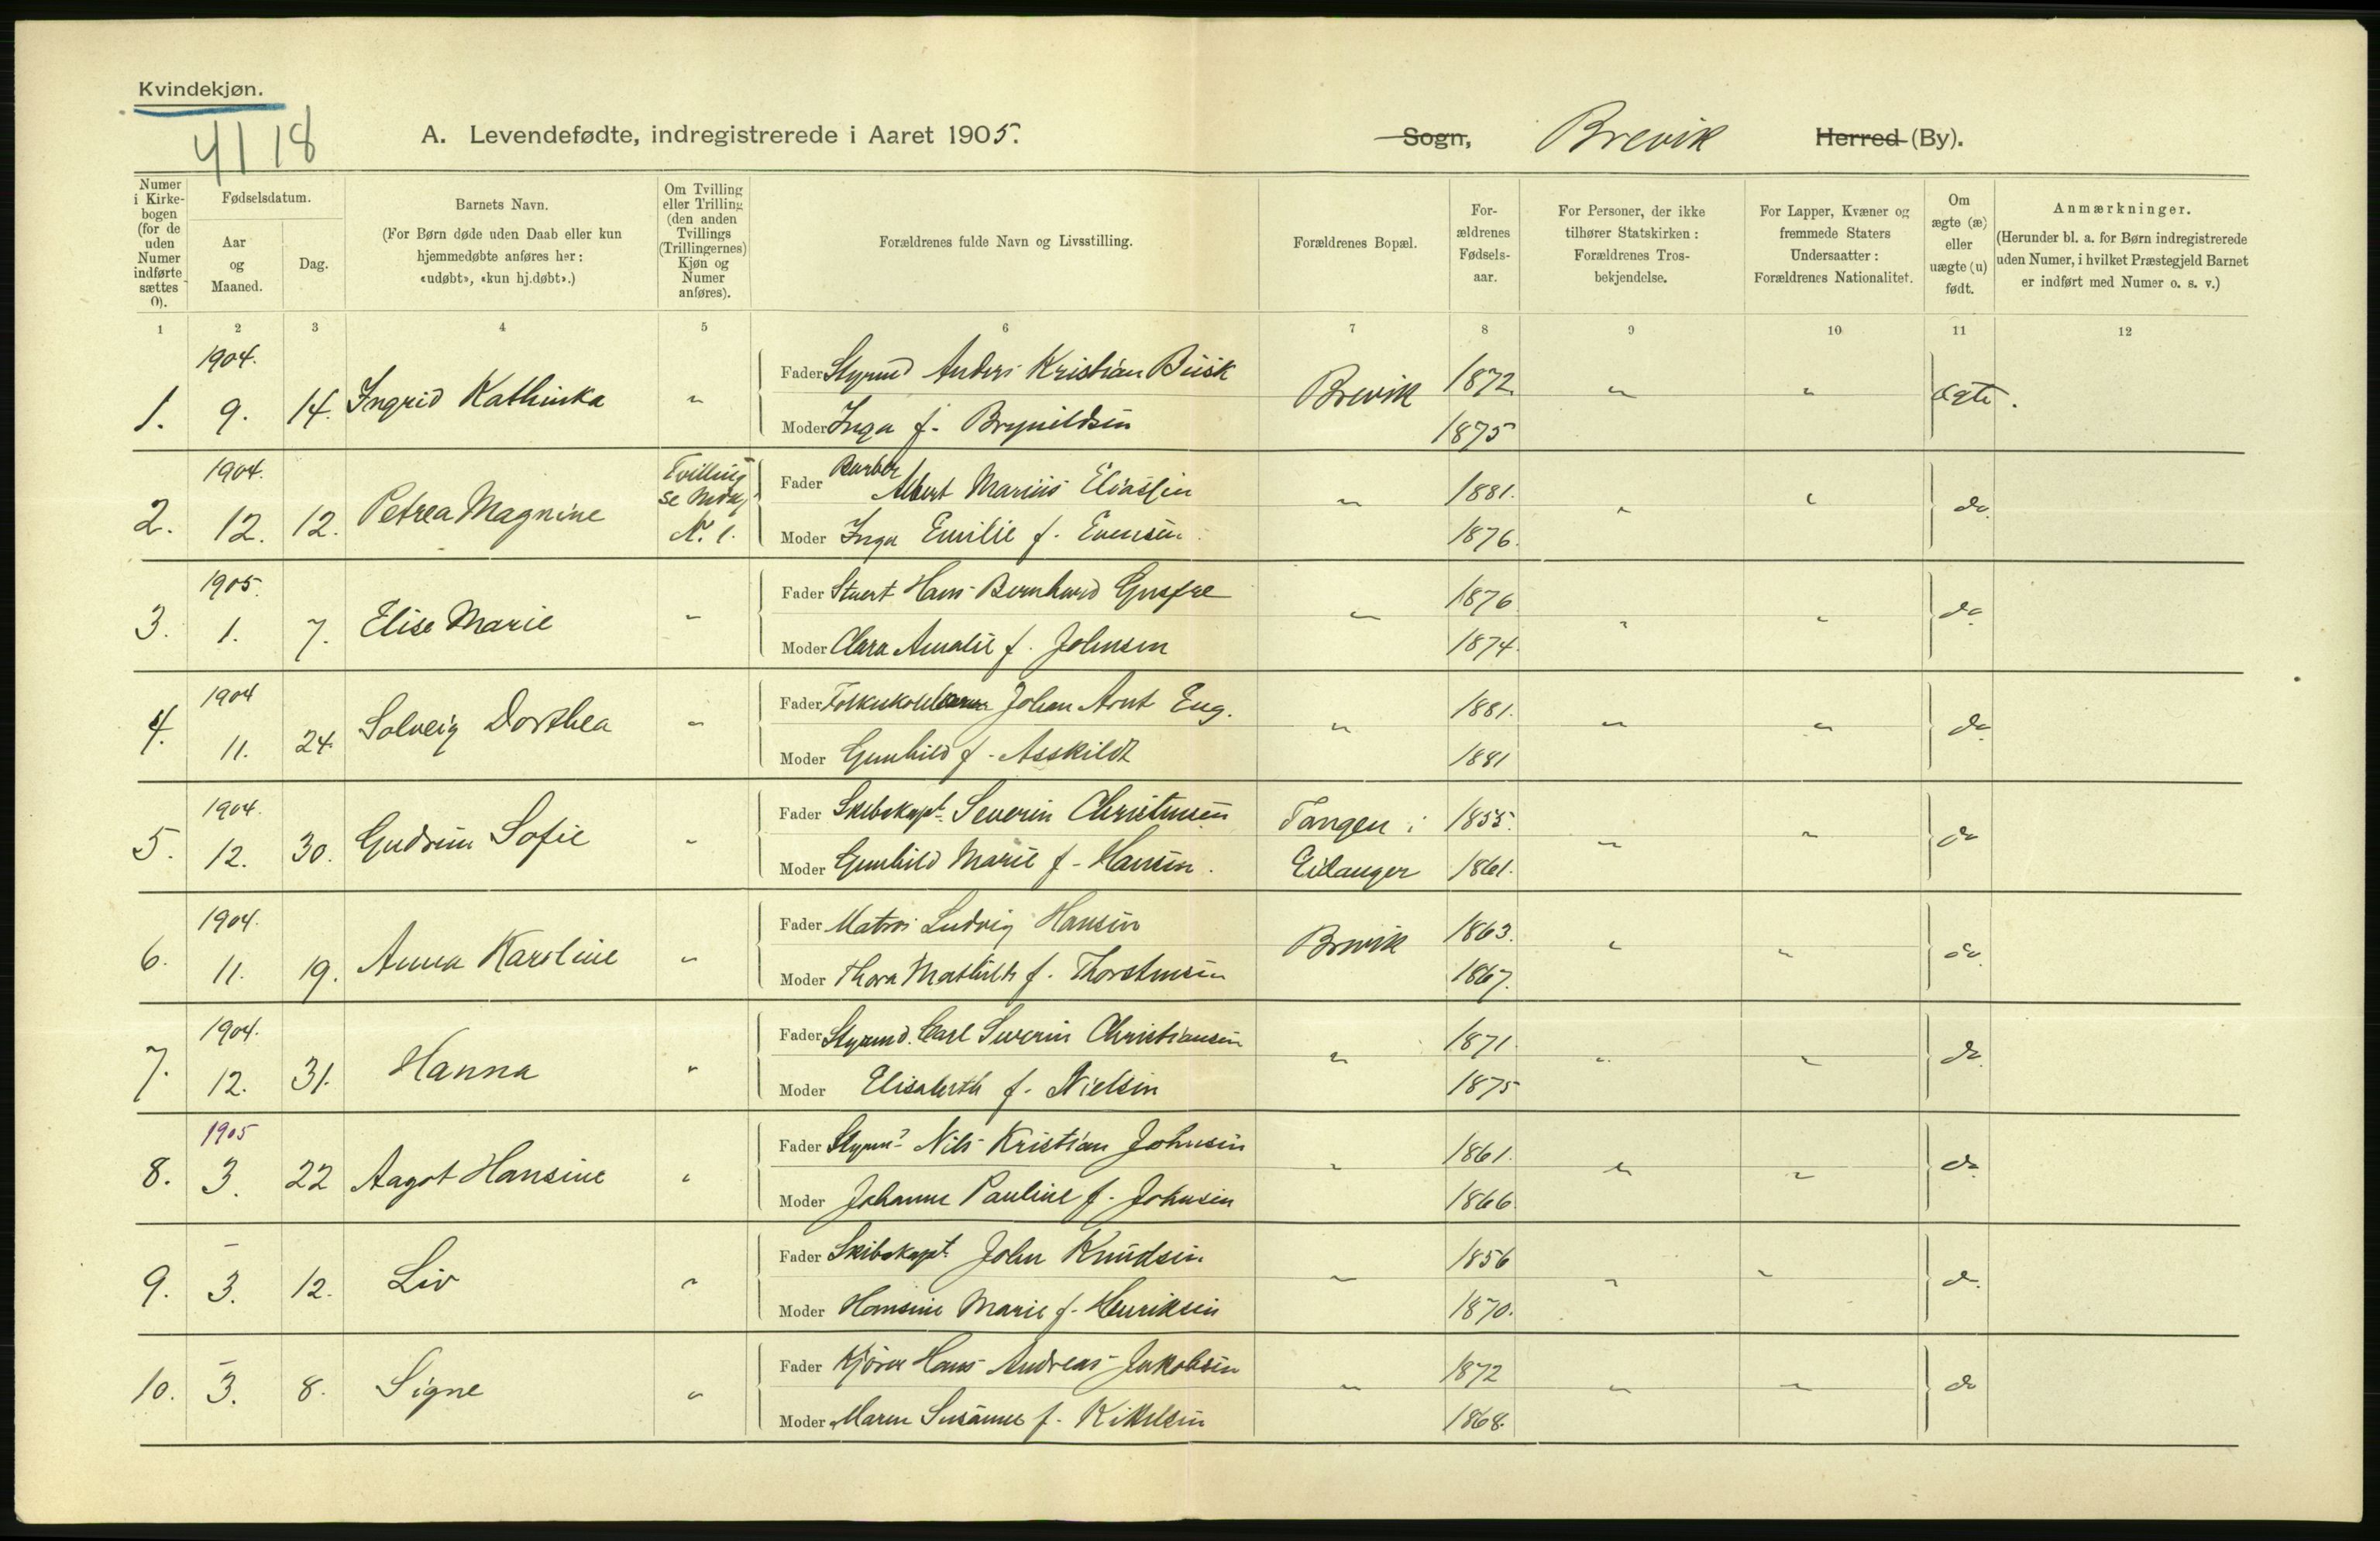 Kvindekjøn.
4118
A. Levendefødte, indregistrerede i Aaret 1905.
Sogn, Brevik Herred (By).
Numer i Kirkebogen (for de uden Numer indførte sættes 0).
Fødselsdatum.
Aar og Maaned.
Dag.
Barnets Navn.
(For Børn døde uden Daab eller kun hjemmedøbte anføres her: «udøbt», «kun hj.døbt».)
Om Tvilling eller Trilling (den anden Tvillings (Trillingernes) Kjøn og Numer anføres).
Forældrenes fulde Navn og Livsstilling.
Forældrenes Bopæl.
Forældrenes Fødselsaar.
For Personer, der ikke tilhører Statskirken: Forældrenes Trosbekjendelse.
For Lapper, Kvæner og fremmede Staters Undersaatter: Forældrenes Nationalitet.
Om ægte (æ) eller uægte (u) født.
Anmærkninger.
(Herunder bl. a. for Børn indregistrerede uden Numer, i hvilket Præstegjeld Barnet er indført med Numer o. s. v.)
1 2 3 4 5 6 7 8 9 10 11 12
1904.
1. 9. 14. Ingrid Kathinka " Fader Styrmd Anders Kristian Busk Brevik 1872. " " ægte.
Moder Inga f. Brynildsen 1875
1904.
2. 12. 12. Petrea Magnine Tvilling se Mdkj N. 1. Fader Barber Albert Marius Eliassen " 1881. " " do.
Moder Inga Emilie f. Evensen. 1876.
1905.
3. 1. 7. Elise Marie " Fader Stuert Hans Bernhard Gusfre " 1876 " " do
Moder Clara Amalie f. Johnsen 1874.
1904
4. 11. 24. Solveig Dorthea " Fader Johan Arnt Eug. " 1881. " " do
Moder Gunhild f. Asskildt 1881
1904.
5. 12. 30. Gudrun Sofie " Fader Skibskapt. Severin Christensen Tangen i 1855. " " do
Moder Gunhild Marie f. Hansen. Eidanger 1861.
1904.
6. 11. 19. Anna Karoline " Fader Matros Ludvig Hansen Brevik 1863. " " do
Moder Thora Mathilde f. Thorstensen 1867.
1904.
7. 12. 31. Hanna " Fader Styrmd. Carl Severin Christiansen " 1871. " " do.
Moder Elisabeth f. Nielsen 1875
1905
8. 3. 22 Aagot Hansine " Fader Styrmd Nils Kristian Johnsen " 1861. " " do
Moder Johanne Pauline f. Johnsen 1866.
–
9. 3. 12. Liv " Fader Skibskapt. John Knudsen " 1856 " " do.
Moder Hansine Marie f. Henriksen 1870.
–
10. 3. 8. Signe " Fader Kjører Hans Andreas Jakobsen " 1872 " " do
Moder Maren Susanne f. Kittelsen 1868.